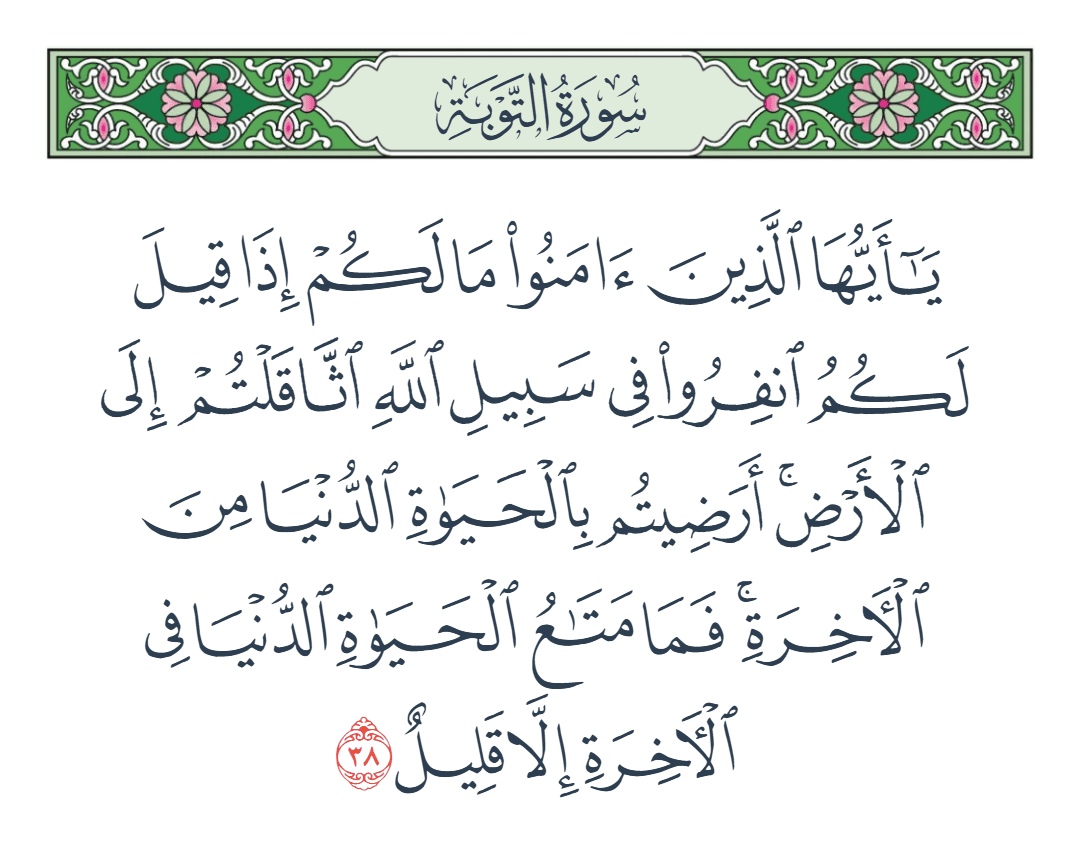 سُورَةُ التَّوْبَةِ
يَـٰٓأَيُّهَا ٱلَّذِينَ ءَامَنُوا۟ مَا لَكُمْ إِذَا قِيلَ
لَكُمُ ٱنفِرُوا۟ فِى سَبِيلِ ٱللَّهِ ٱثَّاقَلْتُمْ إِلَى
ٱلْأَرْضِ ۚ أَرَضِيتُم بِٱلْحَيَوٰةِ ٱلدُّنْيَا مِنَ
ٱلْـَٔاخِرَةِ ۚ فَمَا مَتَـٰعُ ٱلْحَيَوٰةِ ٱلدُّنْيَا فِى
ٱلْـَٔاخِرَةِ إِلَّا قَلِيلٌ ٣٨